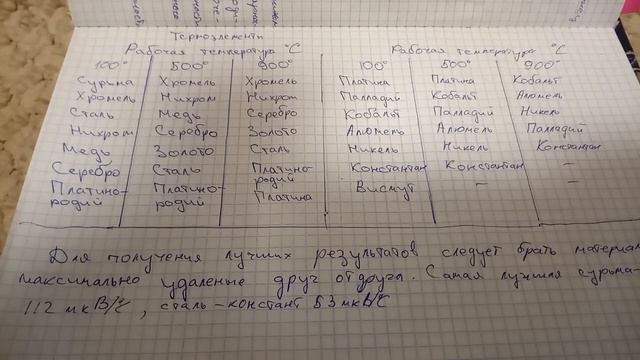 Термоэлементы
Рабочая температура °С Рабочая температура °С
100° 500° 900° 100° 500° 900°
Сурьма Хромель Хромель Платина Платина Кобальт
Хромель Нихром Нихром Палладий Кобальт Алюмель
Сталь Медь Серебро Кобальт Палладий Никель
Нихром Серебро Золото Алюмель Алюмель Палладий
Медь Золото Сталь Никель Никель Константан
Серебро Сталь Платино-родий Константан Константан –
Платино-родий Платино-родий Платина Висмут – –
Для получения лучших результатов следует брать материал
максимально удаленые друг от друга. Самая лучшая сурьма-
112 мкВ/°С, сталь-констант 53 мкВ/°С